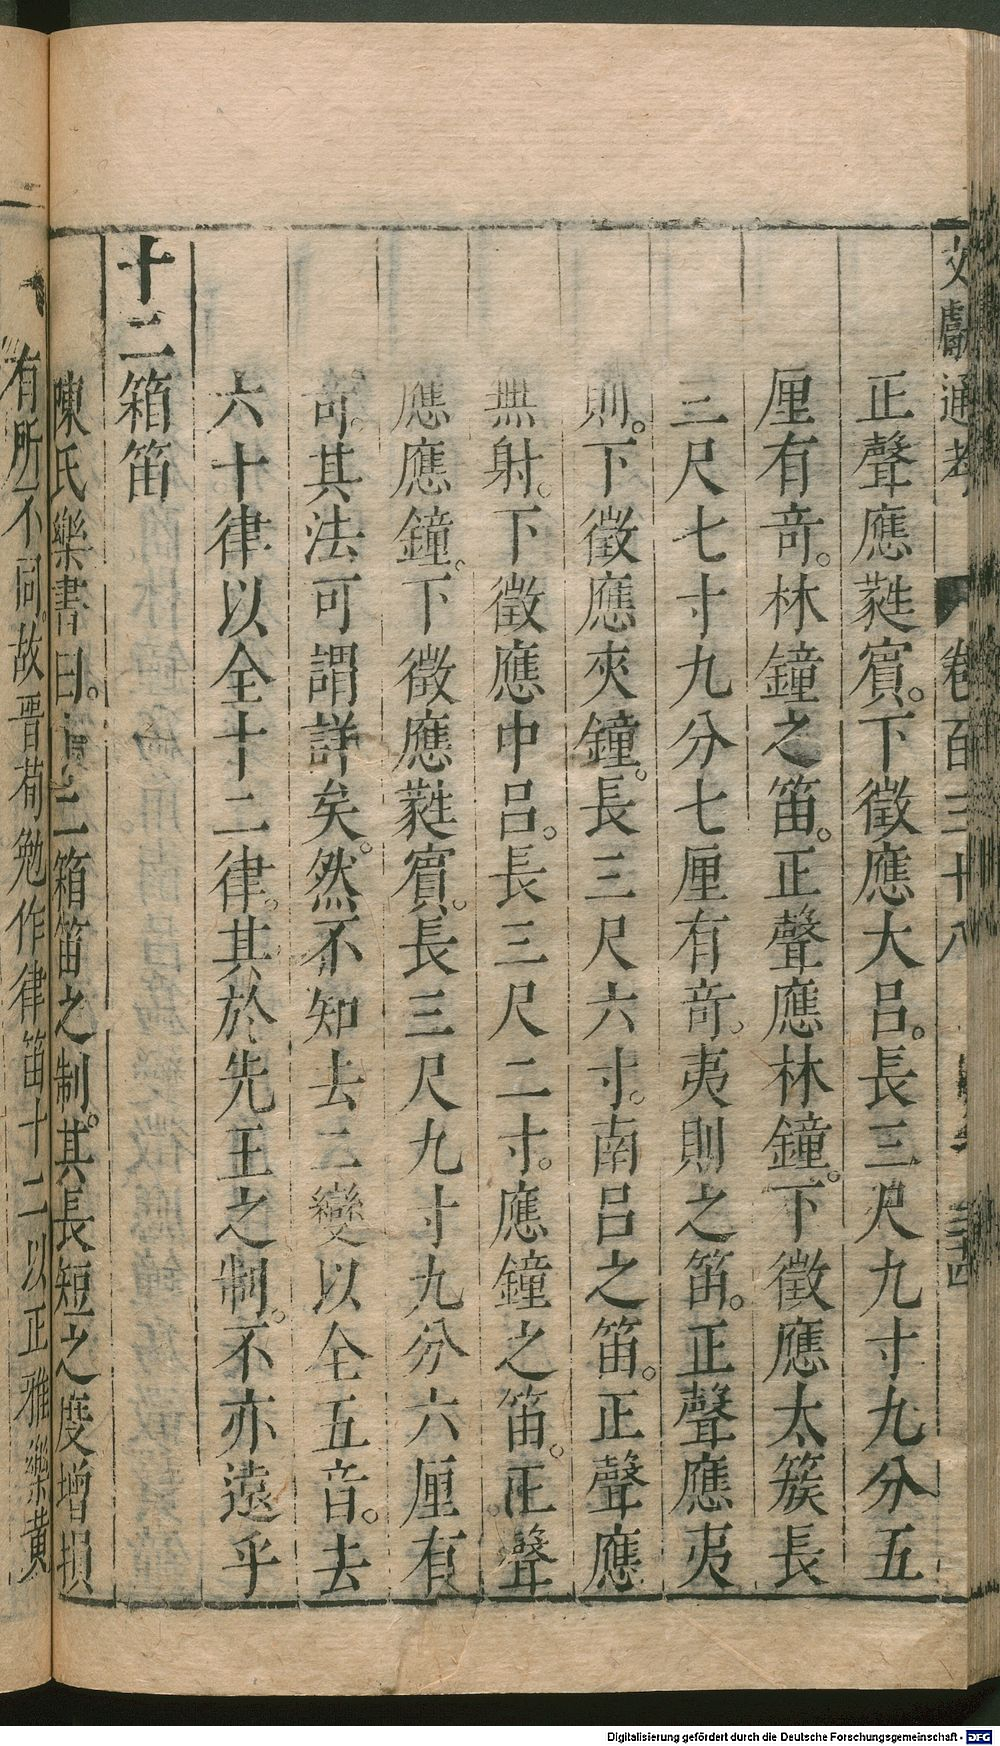 文獻通考 卷百三十八
正聲應蕤賓。下徵應大呂。長三尺九寸九分五
厘有竒。林鐘之笛。正聲應林鐘。下徵應太簇長
三尺七寸九分七厘有竒。夷則之笛。正聲應夷
則。下徵應夾鐘。長三尺六寸。南呂之笛。正聲應
無射。下徵應中呂。長三尺二寸。應鐘之笛。正聲
應應鐘。下徵應蕤賓。長三尺九寸九分六厘有
竒。其法可謂詳矣。然不知去二變以全五音。去
六十律以全十二律。其於先王之制。不亦遠乎
十二箱笛
陳氏樂書曰。箱笛之制。其長短之度增損
有所不同。故晋荀勉作律笛十二以正雅樂黄
Digitalisierung gefördert durch die Deutsche Forschungsgemeinschaft - DFG